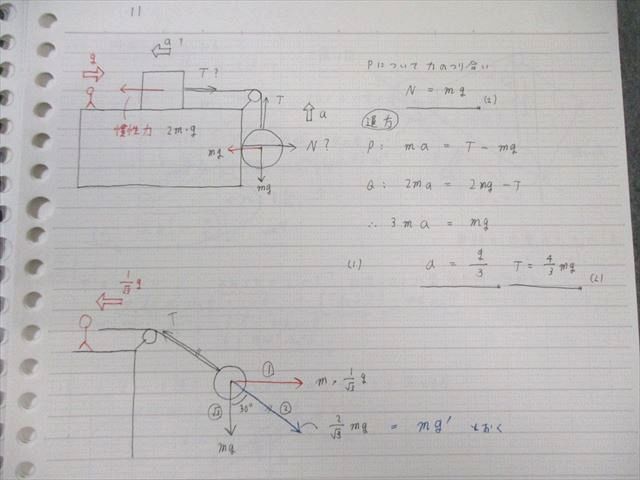 11
a ?
g
T ?
T
a
慣性力 2m・g
mg
N ?
mg
Pについて 力のつり合い
N = mg (2)
運方
P: ma = T - mg
Q: 2ma = 2mg - T
∴ 3ma = mg
(1) a = g/3 T = 4/3 mg (2)
1/√3 g
T
① m・1/√3 g
√3 30° ②
2/√3 mg = mg' とおく
mg